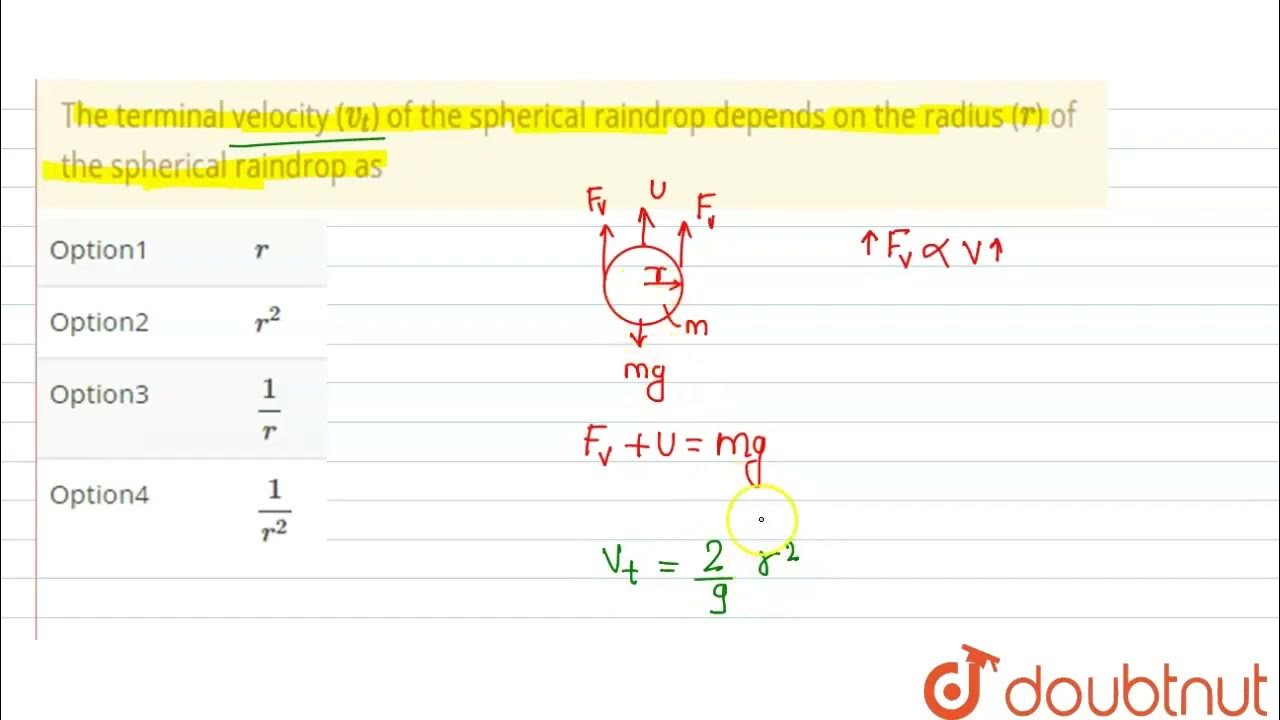 The terminal velocity (v_t) of the spherical raindrop depends on the radius (r) of
the spherical raindrop as
Option1 r
Option2 r²
Option3 1/r
Option4 1/r²
F_v U F_v
r
m
mg
↑ F_v ∝ v ↑
F_v + U = mg
v_t = 2/9 r²
doubtnut